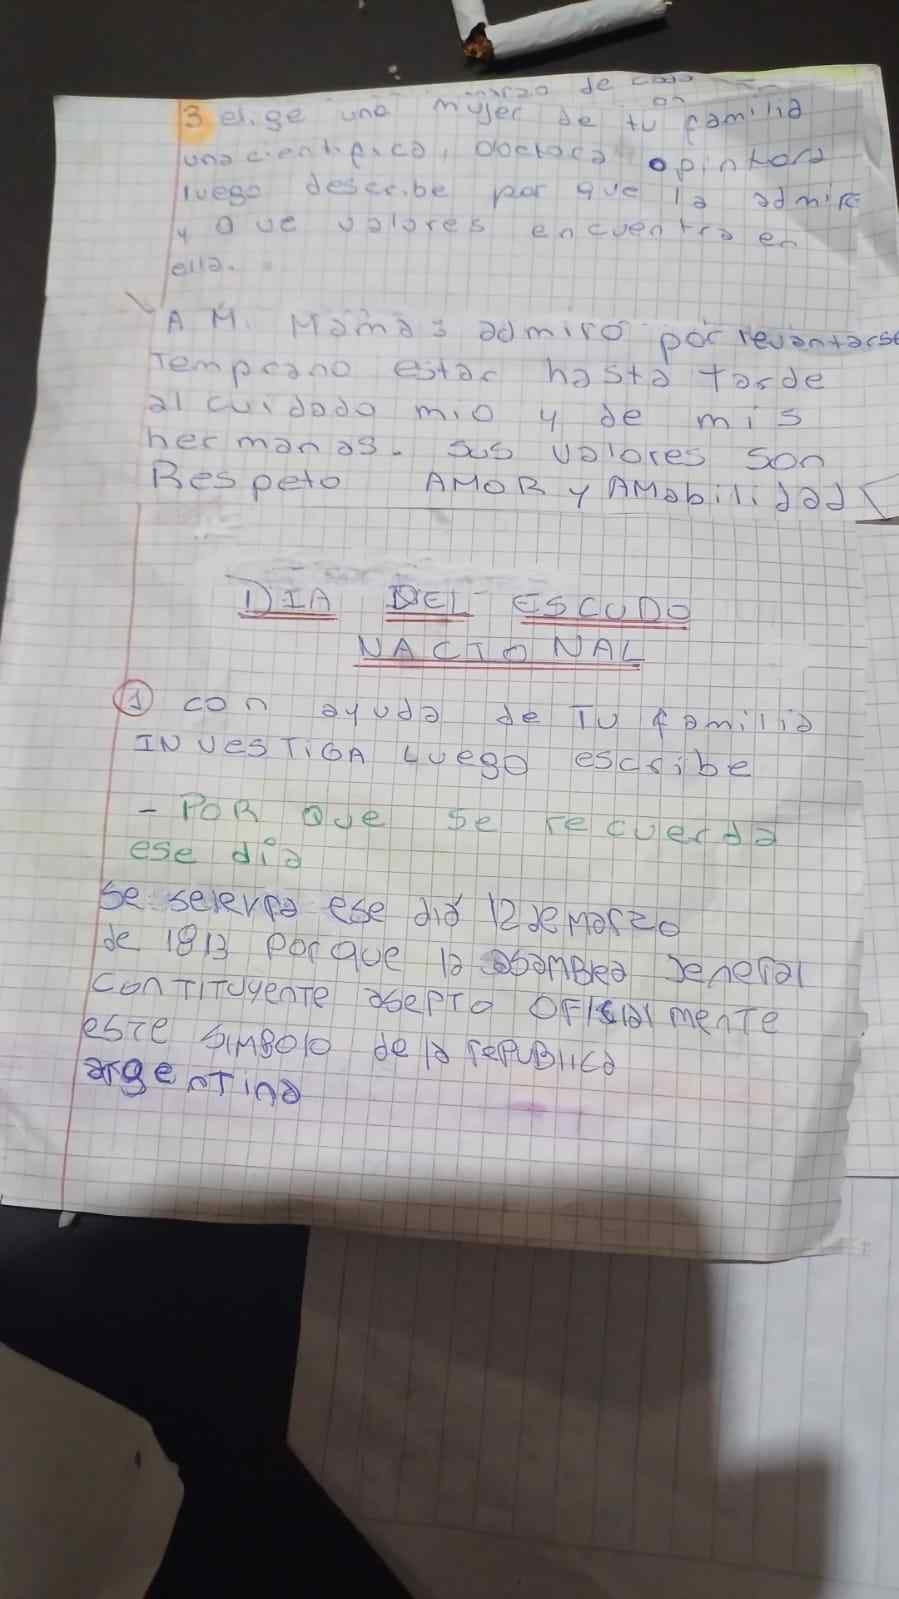 marzo de cada
3 elige una mujer de tu familia
una cientifica, doctora o pintora
luego describe por que la admira
y que valores encuentra en
ella.
A M. Mamas admiro por levantarse
temprano estar hasta tarde
al cuidado mio y de mis
hermanas. sus valores son
Respeto AMOR y AMabilidad
DIA DEL ESCUDO
NACIONAL
1 con ayuda de TU familia
INVESTIGA Luego escribe
- POR que se recuerda
ese dia
se selevra ese dia 12 de marzo
de 1813 porque la asamblea jeneral
constituyente asepto ofisialmente
este simbolo de la republica
argentina